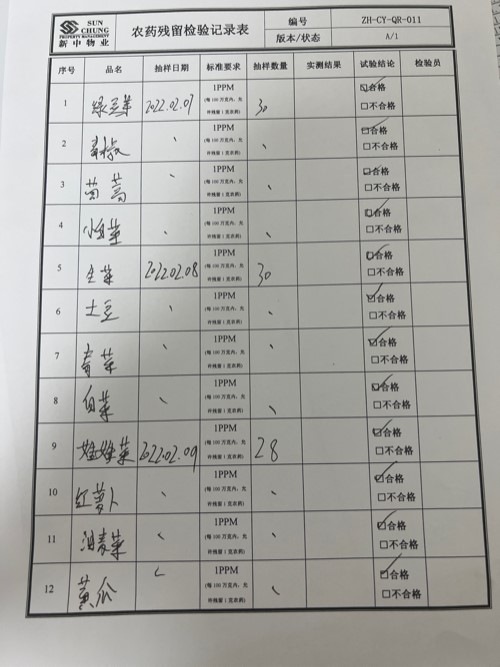 SUN CHUNG
新中物业
农药残留检验记录表
编号
ZH-CY-QR-011
版本/状态
A/1
序号 品名 抽样日期 标准要求 抽样数量 实测结果 试验结论 检验员
1 绿豆芽 2022.02.07 1PPM 30 ☑合格
(每100万克内,允许残留1克农药) □不合格
2 青椒 、 1PPM ☑合格
(每100万克内,允许残留1克农药) 、 □不合格
3 茼蒿 、 1PPM ☑合格
(每100万克内,允许残留1克农药) 、 □不合格
4 小白菜 、 1PPM ☑合格
(每100万克内,允许残留1克农药) 、 □不合格
5 生菜 2022.02.08 1PPM 30 ☑合格
(每100万克内,允许残留1克农药) □不合格
6 土豆 、 1PPM ☑合格
(每100万克内,允许残留1克农药) 、 □不合格
7 青菜 、 1PPM 、 ☑合格
(每100万克内,允许残留1克农药) □不合格
8 白菜 、 1PPM ☑合格
(每100万克内,允许残留1克农药) 、 □不合格
9 娃娃菜 2022.02.09 1PPM 28 ☑合格
(每100万克内,允许残留1克农药) □不合格
10 红萝卜 、 1PPM ☑合格
(每100万克内,允许残留1克农药) 、 □不合格
11 油麦菜 、 1PPM ☑合格
(每100万克内,允许残留1克农药) 、 □不合格
12 黄瓜 、 1PPM ☑合格
(每100万克内,允许残留1克农药) 、 □不合格